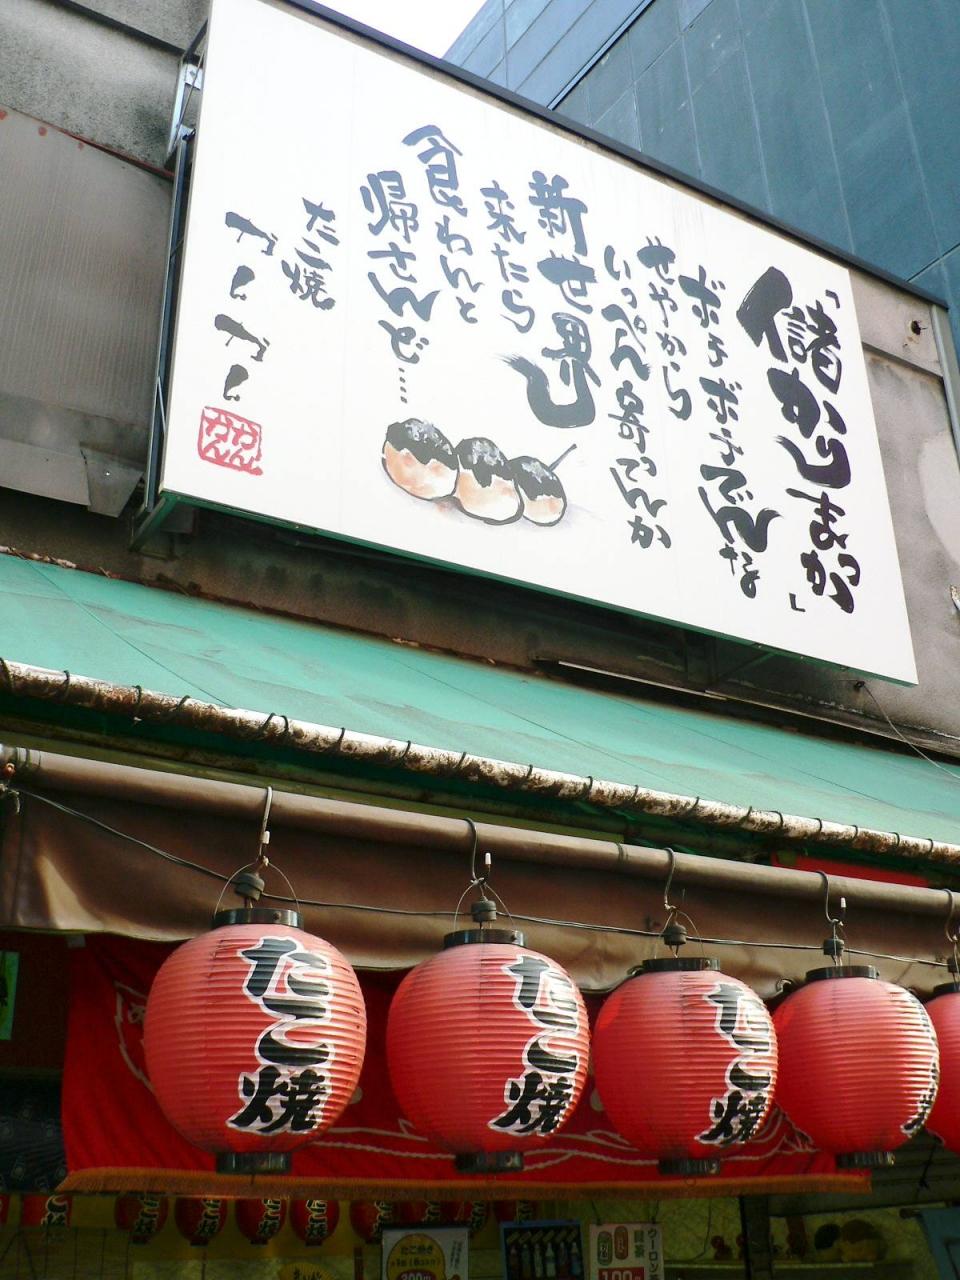 「儲かりまっか」
ボチボチでんな
せやから
いっぺん寄ってんか
新世界に
来たら
食わんと
帰さんど…
たこ焼
かんかん
かんかん
たこ焼
たこ焼
たこ焼
たこ焼き